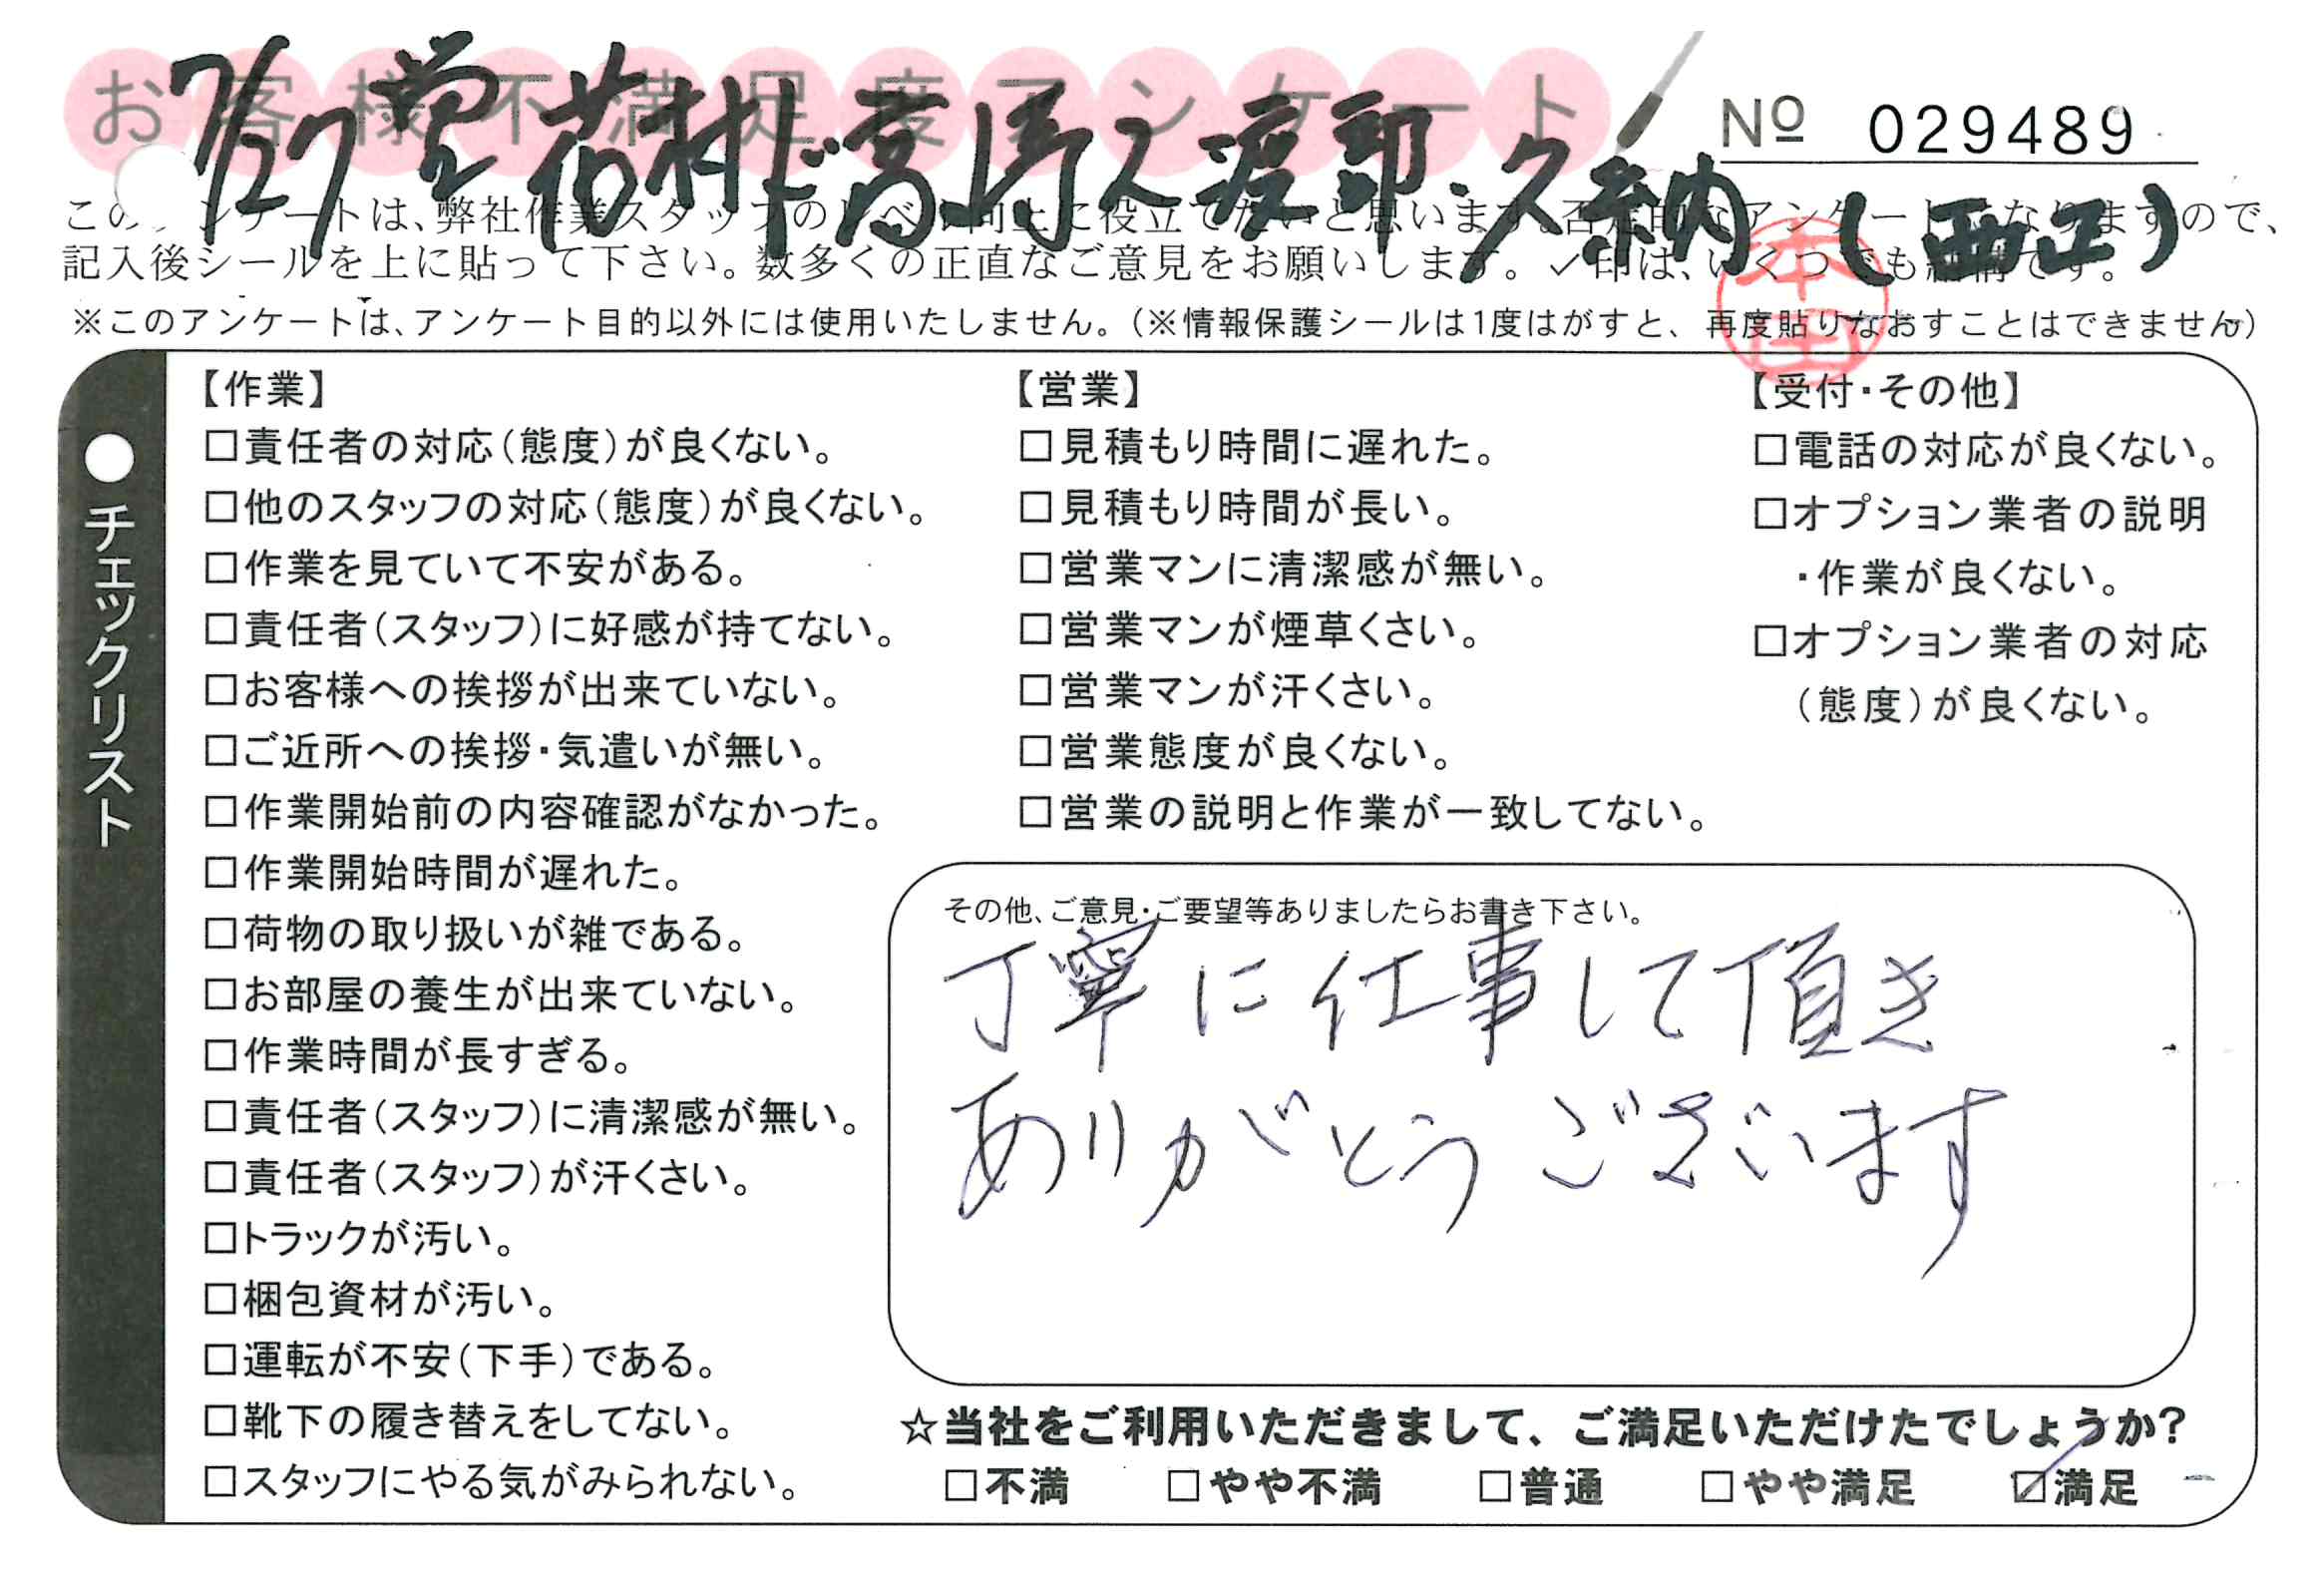 お客様不満足度アンケート
7/27 堂 荷材ド高馬 ス渡部・久納(西正)
№ 029489
このアンケートは、弊社作業スタッフのレベル向上に役立てたいと思います。否定的なアンケートになりますので、
記入後シールを上に貼って下さい。数多くの正直なご意見をお願いします。✓印は、いくつでも結構です。
※このアンケートは、アンケート目的以外には使用いたしません。(※情報保護シールは1度はがすと、再度貼りなおすことはできません)
本田
●チェックリスト
【作業】
□責任者の対応(態度)が良くない。
□他のスタッフの対応(態度)が良くない。
□作業を見ていて不安がある。
□責任者(スタッフ)に好感が持てない。
□お客様への挨拶が出来ていない。
□ご近所への挨拶・気遣いが無い。
□作業開始前の内容確認がなかった。
□作業開始時間が遅れた。
□荷物の取り扱いが雑である。
□お部屋の養生が出来ていない。
□作業時間が長すぎる。
□責任者(スタッフ)に清潔感が無い。
□責任者(スタッフ)が汗くさい。
□トラックが汚い。
□梱包資材が汚い。
□運転が不安(下手)である。
□靴下の履き替えをしてない。
□スタッフにやる気がみられない。
【営業】
□見積もり時間に遅れた。
□見積もり時間が長い。
□営業マンに清潔感が無い。
□営業マンが煙草くさい。
□営業マンが汗くさい。
□営業態度が良くない。
□営業の説明と作業が一致してない。
【受付・その他】
□電話の対応が良くない。
□オプション業者の説明
・作業が良くない。
□オプション業者の対応
(態度)が良くない。
その他、ご意見・ご要望等ありましたらお書き下さい。
丁寧に仕事して頂き
ありがとうございます
☆当社をご利用いただきまして、ご満足いただけたでしょうか?
□不満 □やや不満 □普通 □やや満足 ☑満足